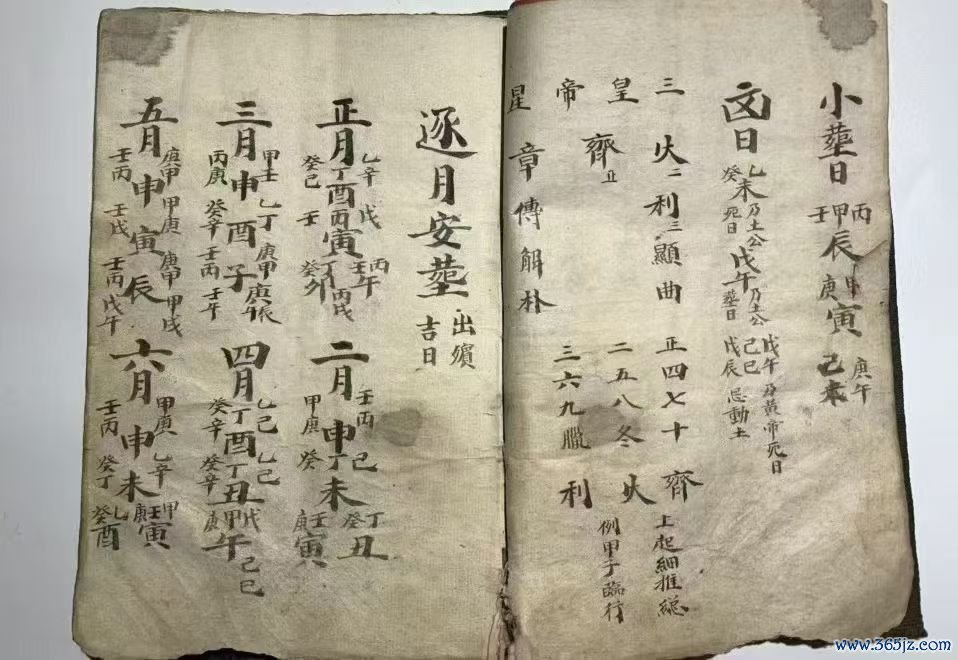 小葬日 丙甲壬辰 甲庚寅 庚午 己未
日 乙癸未 乃土公死日 戊午 乃土公葬日 戊午 乃黃帝死日 己巳 戊辰 忌動土
三 火二利三顯曲 正四七十 齊 上起細推総
皇 齊 二五八冬 火 例甲子臨行
帝 三六九臘 利
星 章傳解朴
逐月安葬 出殯 吉日
正月 乙辛丁癸己酉 戊丙壬寅 丙壬午 丁癸卯 丙戌
二月 壬丙甲庚申 己丁癸未 壬庚寅 丁癸丑
三月 甲壬丙庚申 乙丁癸辛酉 庚甲丙壬子 庚辰 庚午 壬午
四月 乙己丁癸辛酉 乙己丁辛丑 戊甲庚午 己巳
五月 庚甲壬丙申 甲庚壬戊寅 庚甲壬丙辰 甲戌 戊午
六月 甲庚壬丙申 乙辛癸丁未 甲壬庚寅 乙癸酉
www.365jz.com